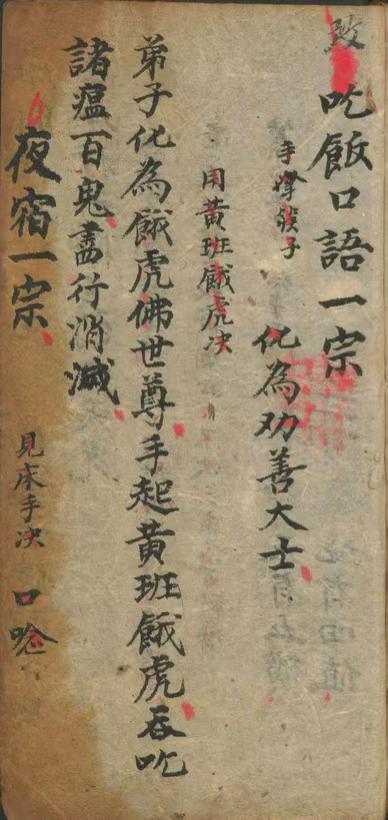 吃飯口語一宗
手捧筷子 化為劝善大士
用黃班餓虎决
弟子化為餓虎佛世尊手起黃班餓虎吞吃
諸瘟百鬼盡行消滅
夜宿一宗 見床手决 口唸